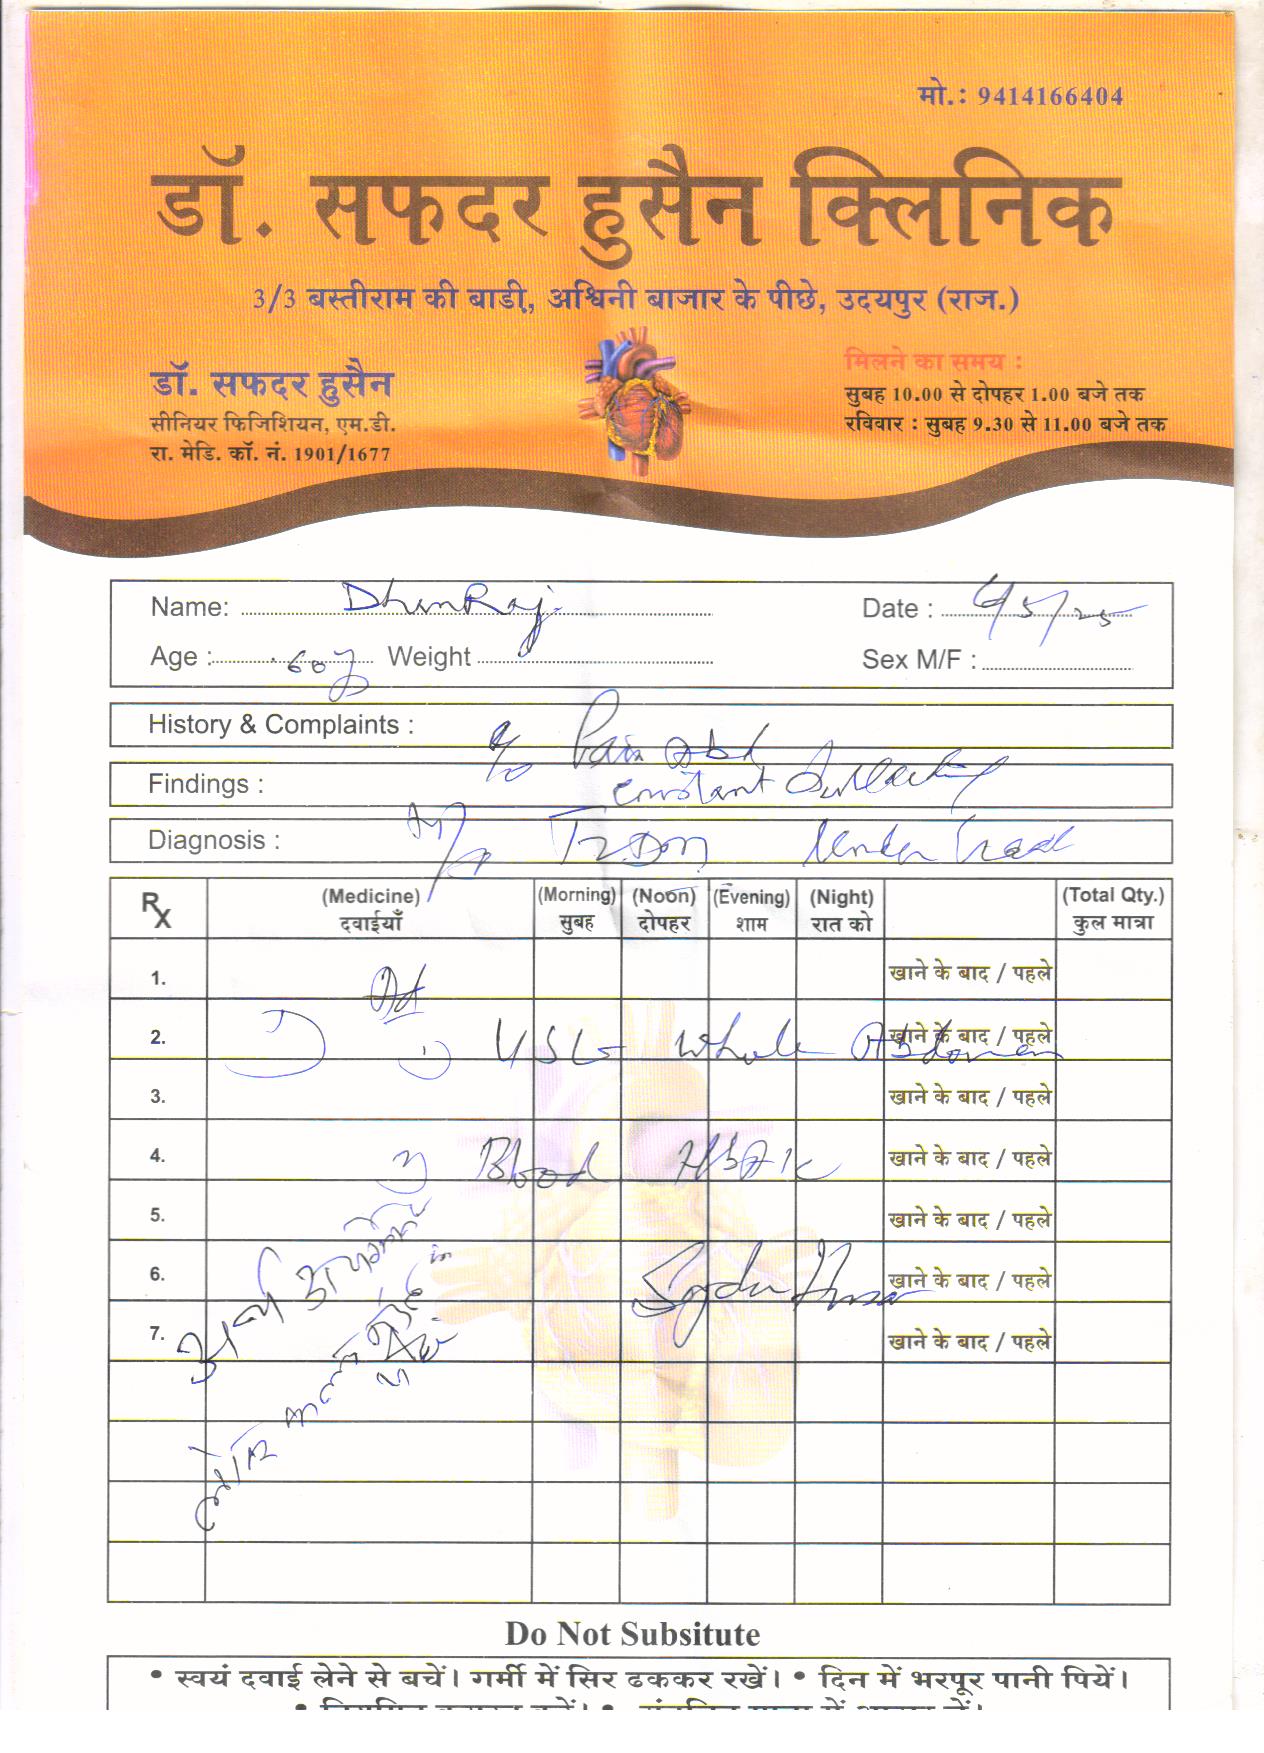 मो.: 9414166404
डॉ. सफदर हुसैन क्लिनिक
3/3 बस्तीराम की बाडी, अश्विनी बाजार के पीछे, उदयपुर (राज.)
डॉ. सफदर हुसैन
सीनियर फिजिशियन, एम.डी.
रा. मेडि. कॉ. नं. 1901/1677
मिलने का समय :
सुबह 10.00 से दोपहर 1.00 बजे तक
रविवार : सुबह 9.30 से 11.00 बजे तक
Name: DhanRaj Date : 6/5/25
Age : 60y Weight Sex M/F :
History & Complaints : Pain Abd
Findings : constant
Diagnosis : T2DM
Rx (Medicine) (Morning) (Noon) (Evening) (Night) (Total Qty.)
दवाईयाँ सुबह दोपहर शाम रात को कुल मात्रा
1. Ad खाने के बाद / पहले
2. USG Whole Abdomen खाने के बाद / पहले
3. खाने के बाद / पहले
4. Blood HbA1c खाने के बाद / पहले
5. खाने के बाद / पहले
6. खाने के बाद / पहले
7. खाने के बाद / पहले
Do Not Subsitute
• स्वयं दवाई लेने से बचें। गर्मी में सिर ढककर रखें। • दिन में भरपूर पानी पियें।